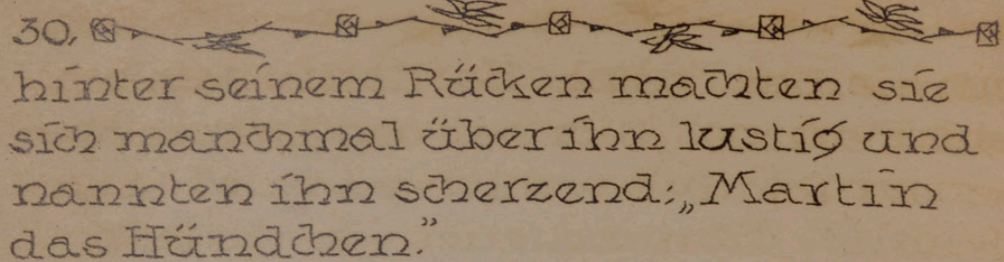 30,
hinter seinem Rücken machten sie
sich manchmal über ihn lustig und
nannten ihn scherzend: „Martin
das Hündchen.”